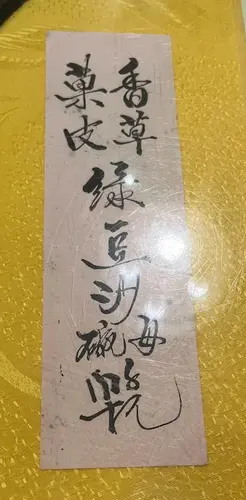 香草
菓皮
绿豆沙
每
碗